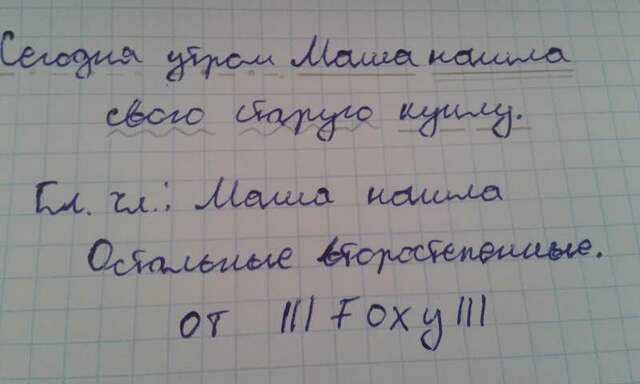 Сегодня утром Маша нашла
свого старуго куклу.
Гл. чл.: Маша нашла
Остальные второстепенные.
от lll Foxy lll